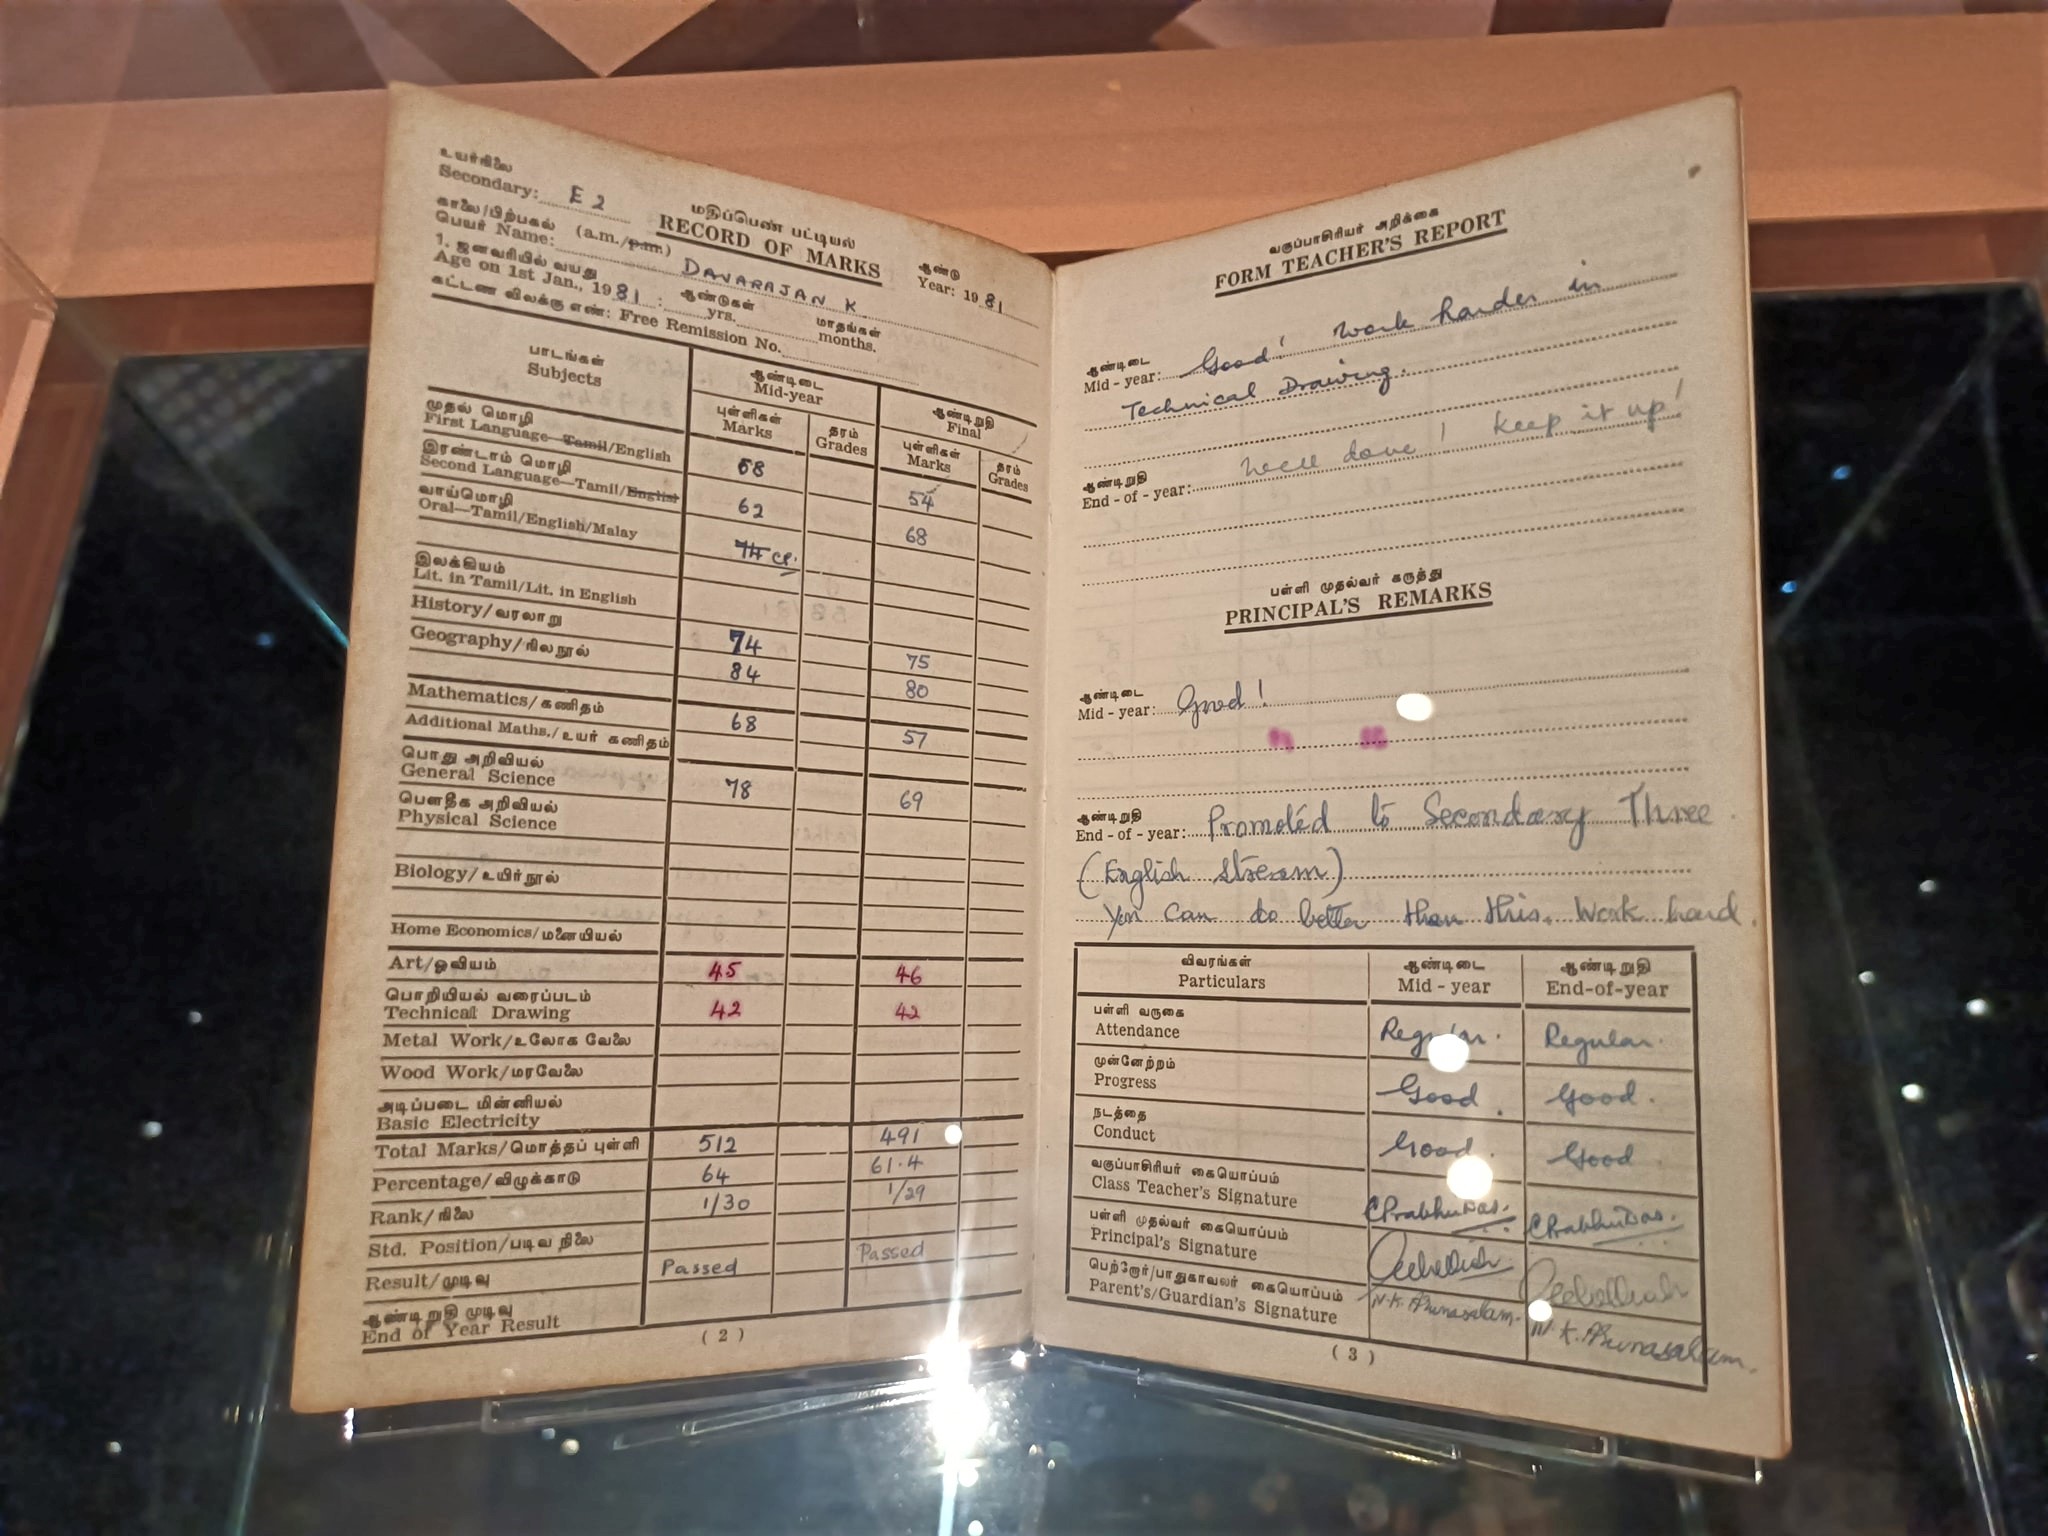 உயர்நிலை
Secondary: E 2
மதிப்பெண் பட்டியல்
RECORD OF MARKS
காலை/பிற்பகல் (a.m./p.m)
ஆண்டு
Year: 1981
பெயர் Name: DAVARAJAN K
1. ஜனவரியில் வயது ஆண்டுகள் மாதங்கள்
Age on 1st Jan., 1981 : yrs. months.
கட்டண விலக்கு எண்: Free Remission No.
பாடங்கள் ஆண்டிடை ஆண்டிறுதி
Subjects Mid-year Final
புள்ளிகள் தரம் புள்ளிகள் தரம்
Marks Grades Marks Grades
முதல் மொழி
First Language—Tamil/English 58 54
இரண்டாம் மொழி
Second Language—Tamil/English 62 68
வாய்மொழி
Oral—Tamil/English/Malay 74 CP.
இலக்கியம்
Lit. in Tamil/Lit. in English
History/வரலாறு 74 75
Geography/நிலநூல் 84 80
Mathematics/கணிதம் 68 57
Additional Maths./உயர் கணிதம்
பொது அறிவியல்
General Science 78 69
பௌதீக அறிவியல்
Physical Science
Biology/உயிர்நூல்
Home Economics/மனையியல்
Art/ஓவியம் 45 46
பொறியியல் வரைப்படம்
Technical Drawing 42 42
Metal Work/உலோக வேலை
Wood Work/மரவேலை
அடிப்படை மின்னியல்
Basic Electricity
Total Marks/மொத்தப் புள்ளி 512 491
Percentage/விழுக்காடு 64 61.4
Rank/நிலை 1/30 1/29
Std. Position/படிவ நிலை
Result/முடிவு Passed Passed
ஆண்டிறுதி முடிவு
End of Year Result
( 2 )
வகுப்பாசிரியர் அறிக்கை
FORM TEACHER'S REPORT
ஆண்டிடை
Mid - year: Good! Work harder in
Technical Drawing.
ஆண்டிறுதி
End - of - year: Well done! Keep it up!
பள்ளி முதல்வர் கருத்து
PRINCIPAL'S REMARKS
ஆண்டிடை
Mid - year: Good!
ஆண்டிறுதி
End - of - year: Promoted to Secondary Three
(English Stream)
You can do better than this. Work hard.
விவரங்கள் ஆண்டிடை ஆண்டிறுதி
Particulars Mid - year End-of-year
பள்ளி வருகை
Attendance Regular. Regular.
முன்னேற்றம்
Progress Good. Good.
நடத்தை
Conduct Good. Good.
வகுப்பாசிரியர் கையொப்பம்
Class Teacher's Signature C Prabhu Das. C Prabhu Das.
பள்ளி முதல்வர் கையொப்பம்
Principal's Signature
பெற்றோர்/பாதுகாவலர் கையொப்பம்
Parent's/Guardian's Signature N. K. Arunasalam. N. K. Arunasalam.
( 3 )